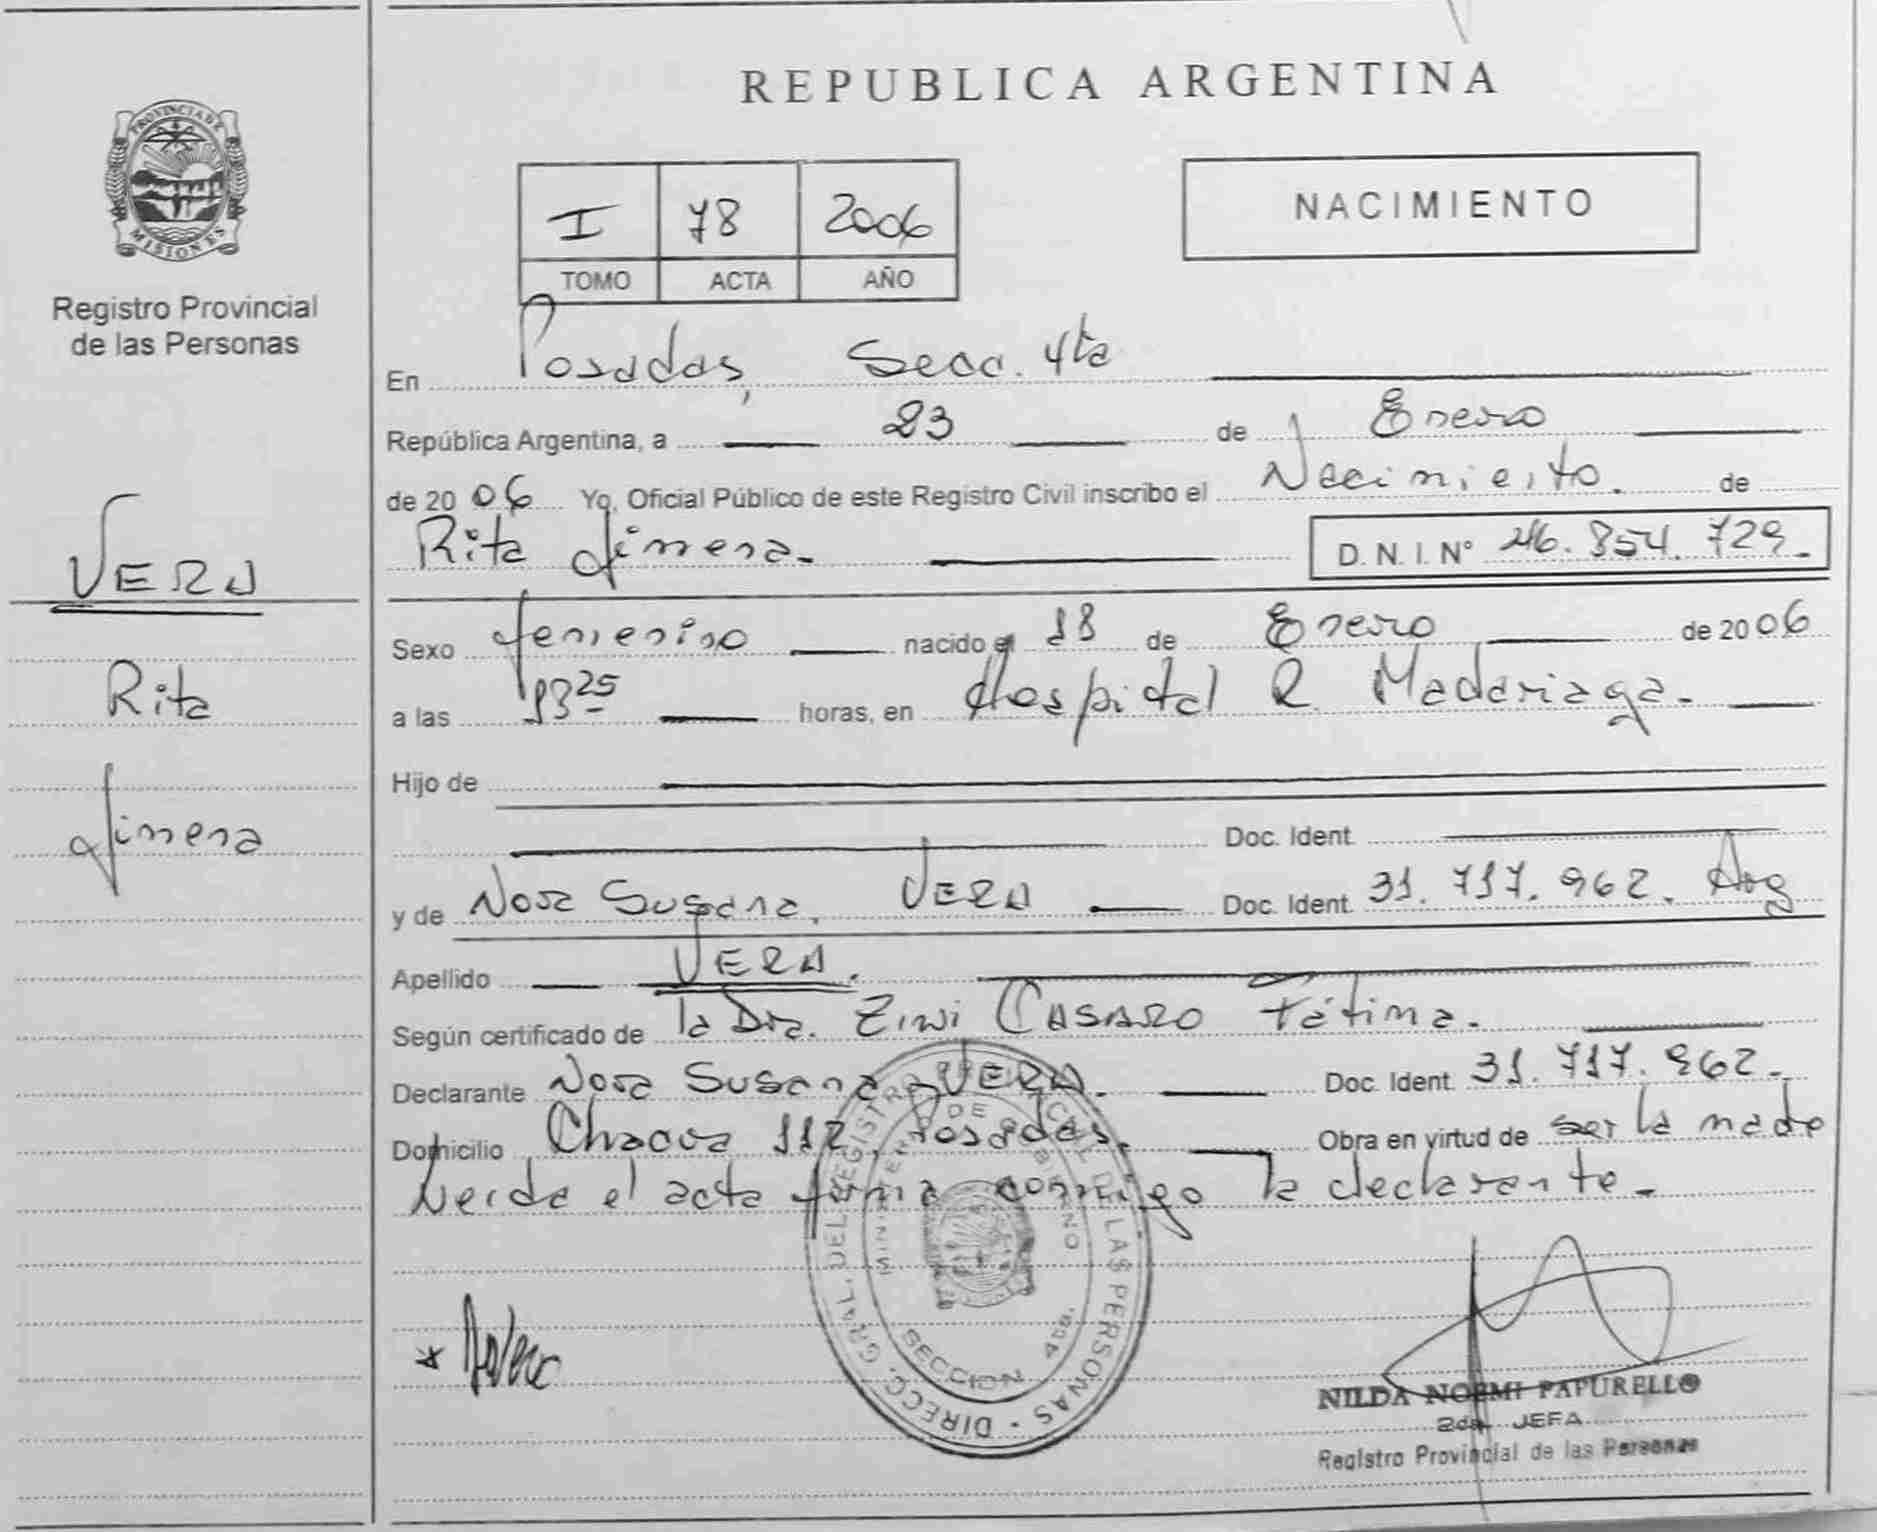 PROVINCIA DE
MISIONES
Registro Provincial
de las Personas
VERA
Rita
Jimena
REPUBLICA ARGENTINA
I 78 2006
TOMO ACTA AÑO
NACIMIENTO
En Posadas, Secc. 4ta
República Argentina, a 23 de Enero
de 2006 Yo, Oficial Público de este Registro Civil inscribo el Nacimiento. de
Rita Jimena.- D. N. I. N° 46. 854. 729.-
Sexo femenino nacido el 18 de Enero de 2006
a las 13 25 horas, en Hospital R Madariaga.-
Hijo de
Doc. Ident.
y de Nora Susana, VERA Doc. Ident. 31. 717. 962. Arg
Apellido VERA.
Según certificado de la Dra. Zini CASARO Fátima.-
Declarante Nora Susana VERA. Doc. Ident. 31. 717. 962.-
Domicilio Chacra 112, Posadas. Obra en virtud de ser la madre
Leida el acta firma conmigo la declarante.-
DIRECC. GRAL. DEL REGISTRO PROVINCIAL DE LAS PERSONAS
MINISTERIO DE GOBIERNO
SECCION 4ta.
NILDA NOEMI PAPURELLO
2da. JEFA
Registro Provincial de las Personas